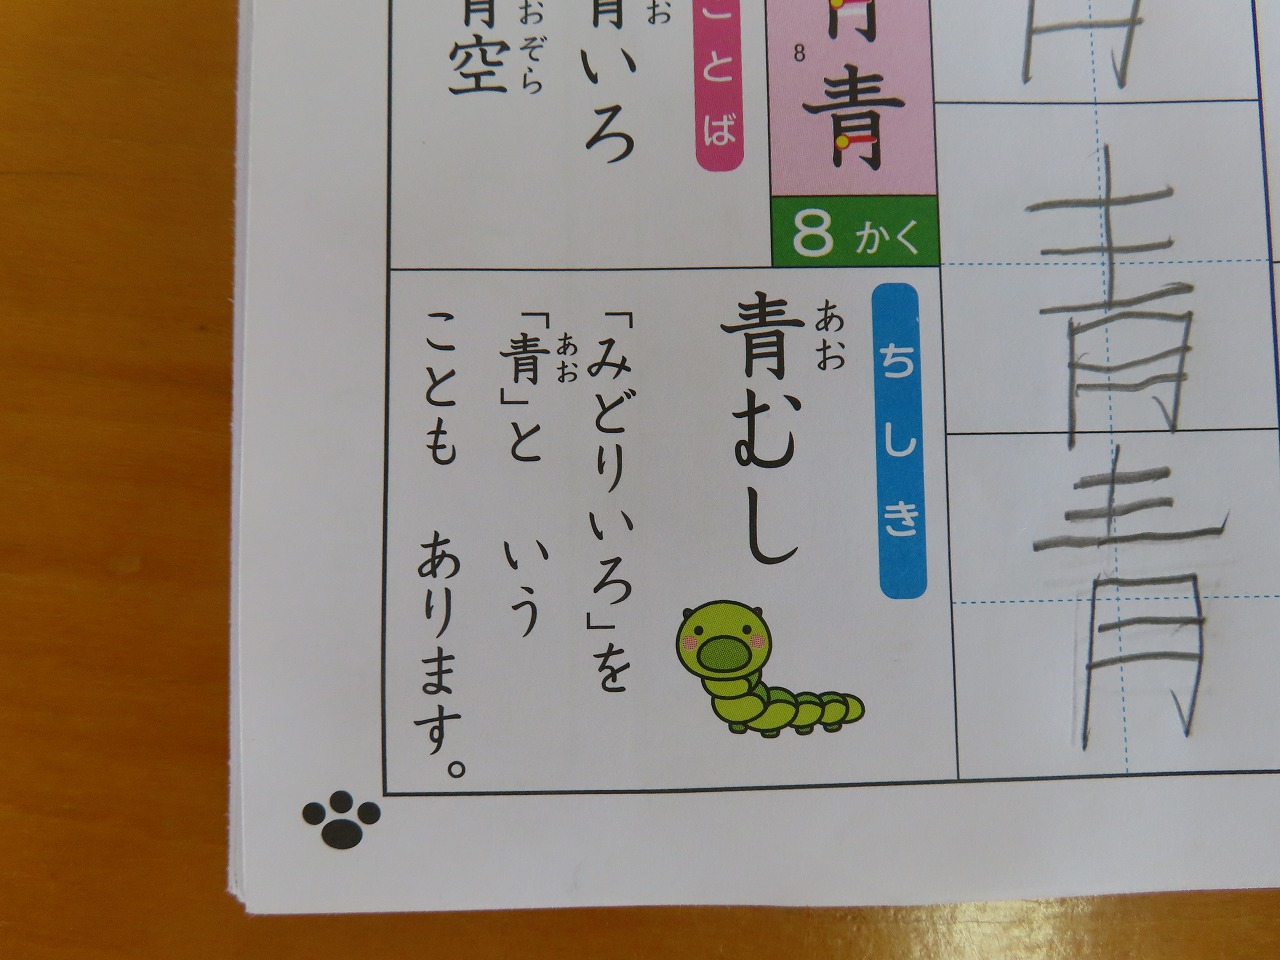 青
青
青
8
青
8かく
ことば
青いろ
お
青空
おぞら
ちしき
青むし
あお
「みどりいろ」を
「青」と いう
あお
ことも あります。